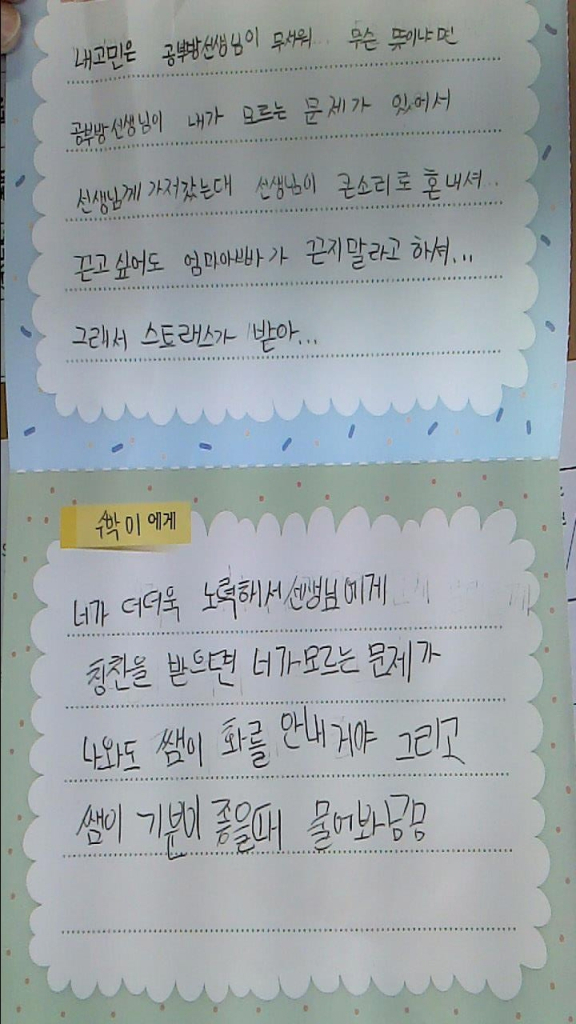 내고민은 공부방선생님이 무서워... 무슨 뜻이냐면
공부방선생님이 내가 모르는 문제가 있어서
선생님께 가져갔는대 선생님이 큰소리로 혼내셔..
끈고싶어도 엄마아빠가 끈지말라고 하셔...
그래서 스트래스가 받아...
수박이에게
너가 더더욱 노력해서 선생님에게
칭찬을 받으면 너가모르는 문제가
나와도 쌤이 화를 안내거야 그리고
쌤이 기분이 좋을때 물어봐